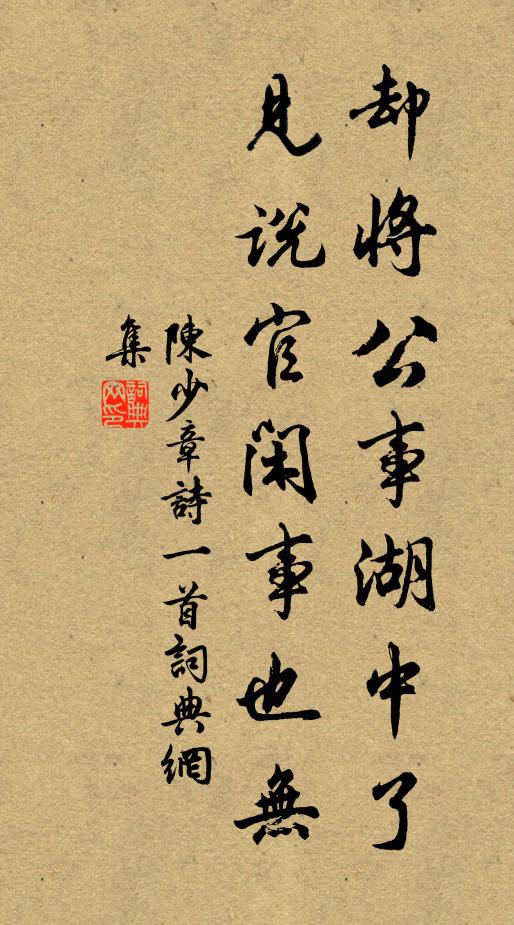 却將公事湖中了
見說官閑事也無
陳少章詩一首詞典網
集
詞典
网印